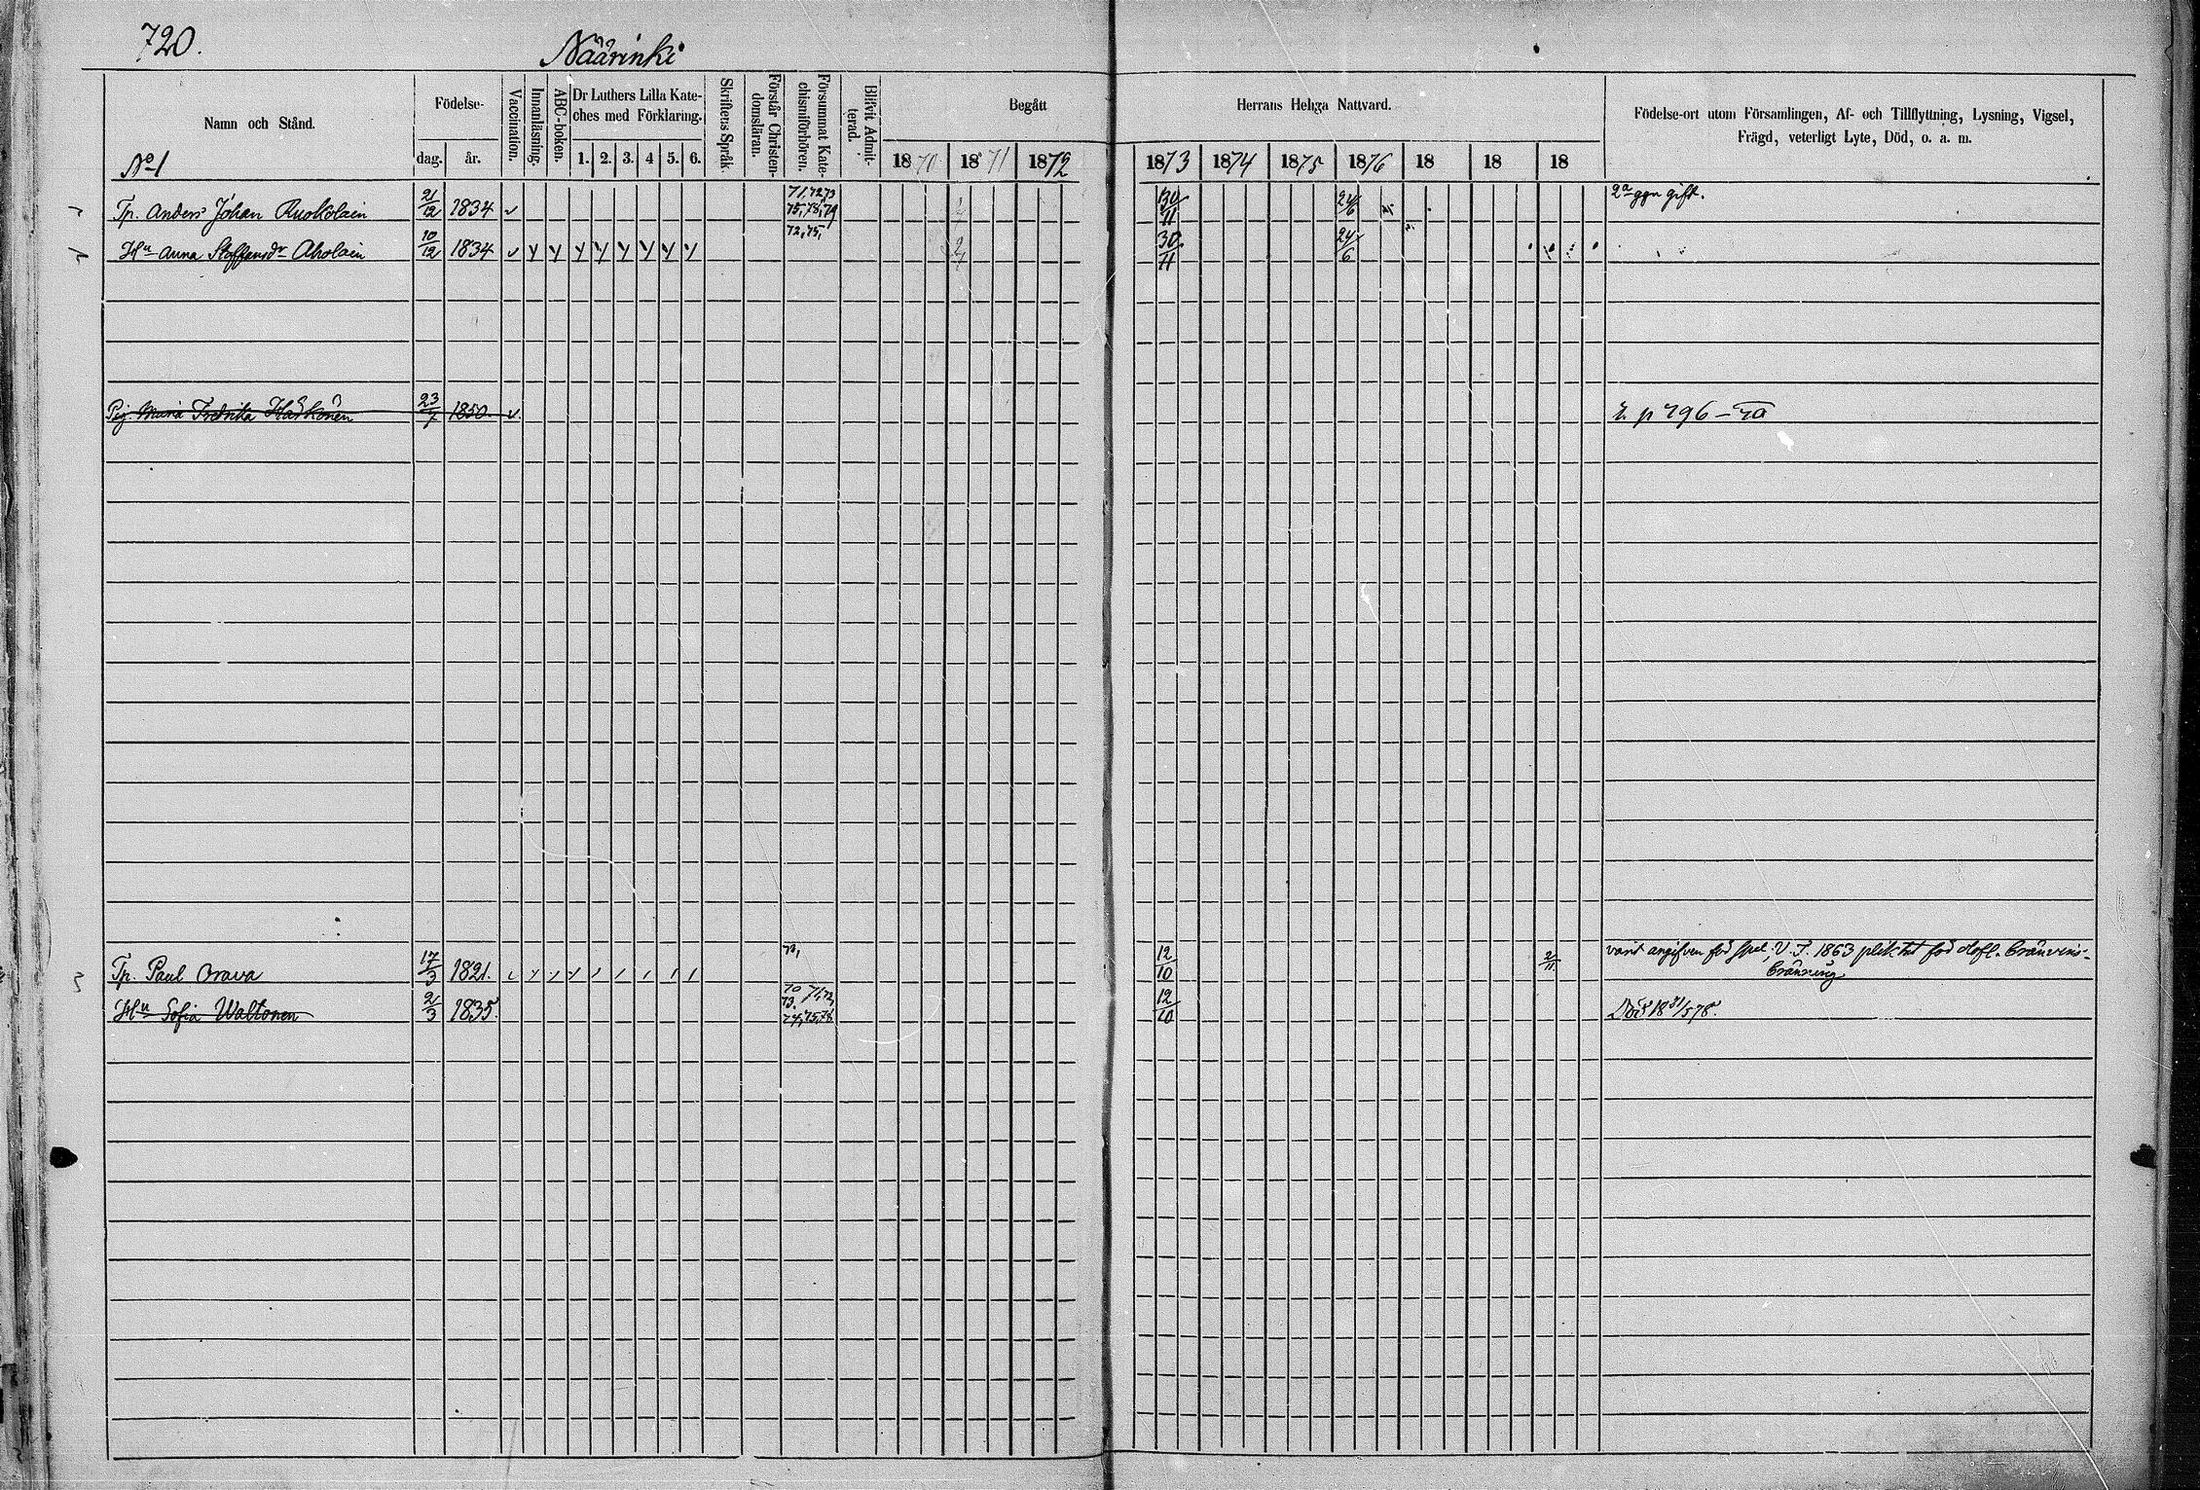 720.
Näärinki
Namn och Stånd.
Födelse-
dag.
år.
Vaccination.
Innanläsning.
ABC-boken.
Dr Luthers Lilla Kate-
ches med Förklaring.
1. 2. 3. 4 5. 6.
Skriftens Språk.
Förstår Christen-
domsläran.
Försummat Kate-
chismiförhören.
Blifvit Admit-
terad.
Begått
1870 1871 1872
Herrans Heliga Nattvard.
1873 1874 1875 1876 18 18 18
Födelse-ort utom Församlingen, Af- och Tillflyttning, Lysning, Vigsel,
Frägd, veterligt Lyte, Död, o. a. m.
No 1
Tp. Anders Johan Ruokolain 21/12 1834 71,72,73 75,78,79 30/11 24/6 2a ggn gift.
Hu Anna Staffansdr Aholain 10/12 1834 72,75, 30/11 24/6
Pig. Maria Fredrika Härkönen 23/7 1850. r. p 796
Tp. Paul Orava 17/3 1821. 73, 12/10 2/11 varit angifven för 1863 pliktat för olofl. bränvins-
bränning
Hu Sofia Waltonen 2/3 1835. 70 71,72, 73. 74,75,78 12/10 Död 18 31/5 78.